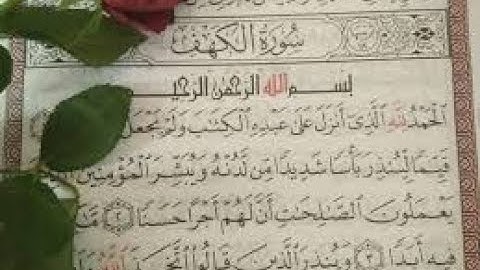 سُورَةُ الكَهْفِ
بسم الله الرحمن الرحيم
ٱلْحَمْدُ لِلَّهِ ٱلَّذِىٓ أَنزَلَ عَلَىٰ عَبْدِهِ ٱلْكِتَٰبَ وَلَمْ يَجْعَل
قَيِّمًا لِّيُنذِرَ بَأْسًا شَدِيدًا مِّن لَّدُنْهُ وَيُبَشِّرَ ٱلْمُؤْمِنِينَ
يَعْمَلُونَ ٱلصَّٰلِحَٰتِ أَنَّ لَهُمْ أَجْرًا حَسَنًا ٢
فِيهِ أَبَدًا ٣ وَيُنذِرَ ٱلَّذِينَ قَالُوا۟ ٱتَّخَذَ ٱللَّهُ